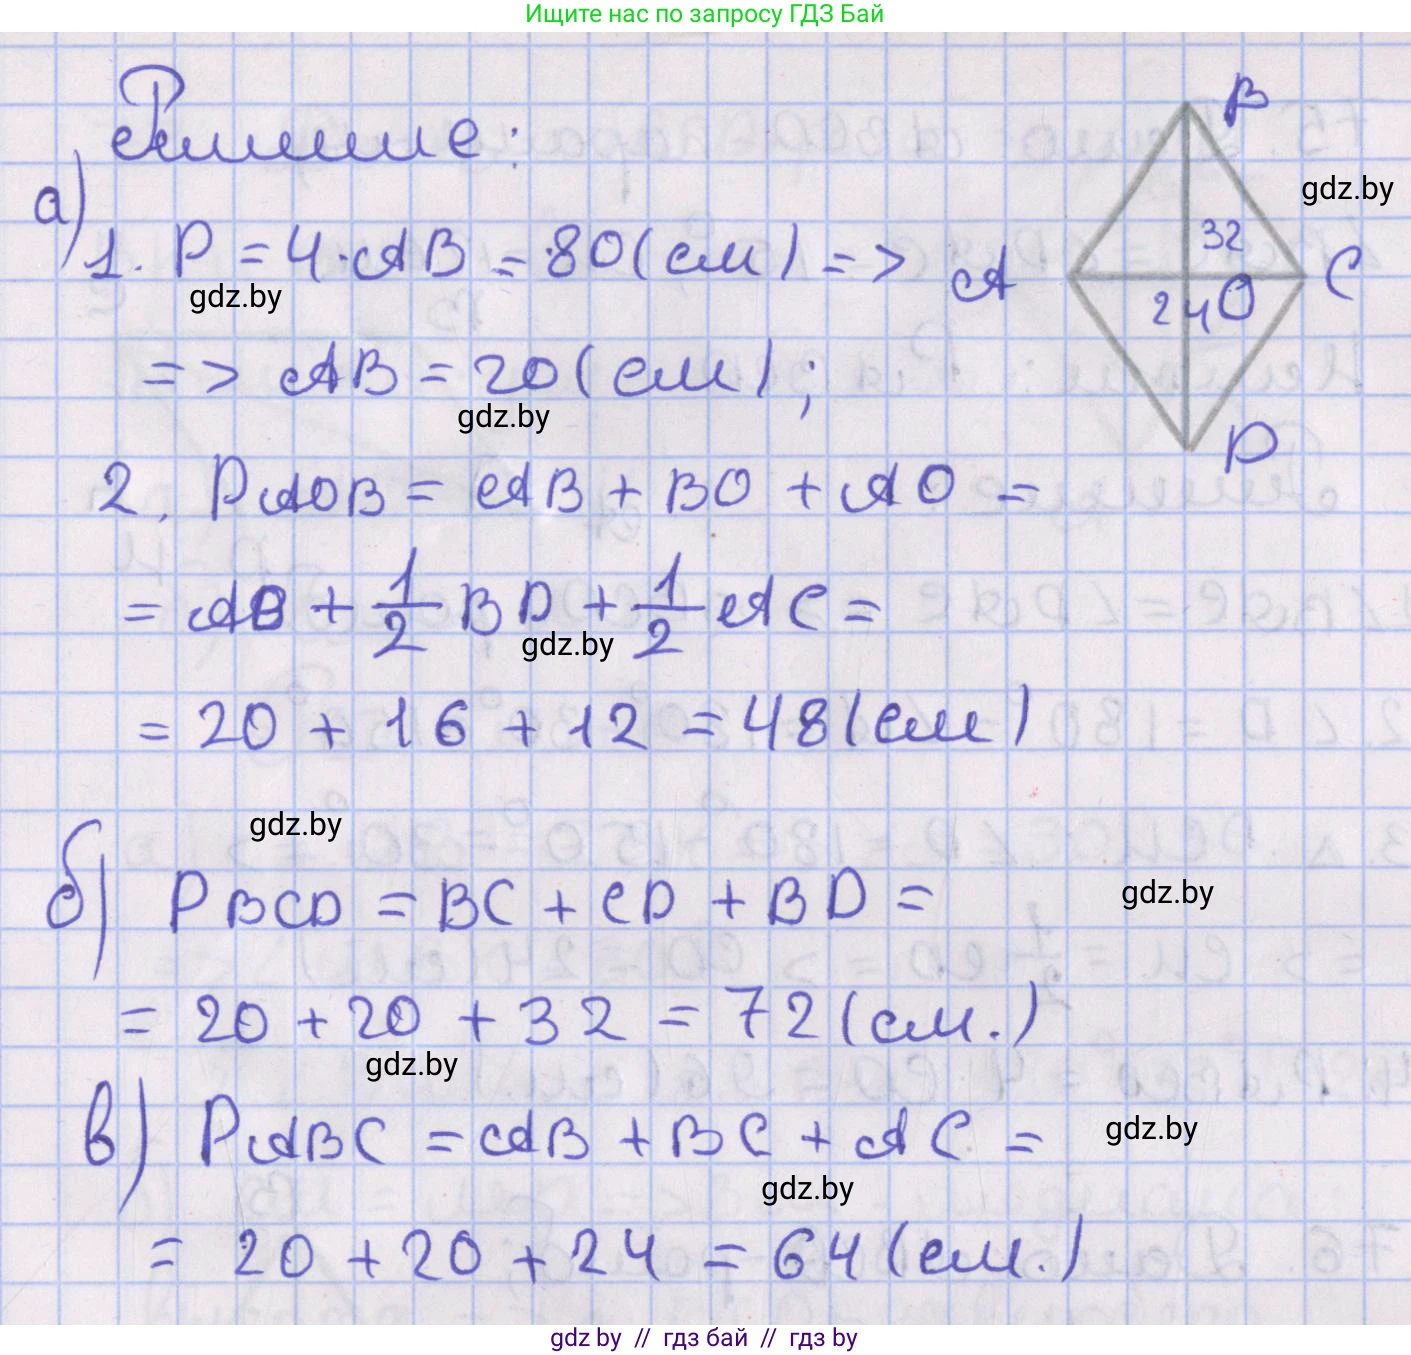 Ищите нас по запросу ГДЗ Бай
Решение:
B
gdz.by
а) 1. P = 4·AB = 80 (см) =>
32
A
C
24 O
gdz.by
=> AB = 20 (см);
gdz.by
D
2. PAOB = AB + BO + AO =
= AB + 1/2 BD + 1/2 AC =
gdz.by
= 20 + 16 + 12 = 48 (см)
gdz.by
б) PBCD = BC + CD + BD =
gdz.by
= 20 + 20 + 32 = 72 (см.)
gdz.by
в) PABC = AB + BC + AC =
gdz.by
gdz.by
= 20 + 20 + 24 = 64 (см.)
gdz.by // гдз бай // гдз by